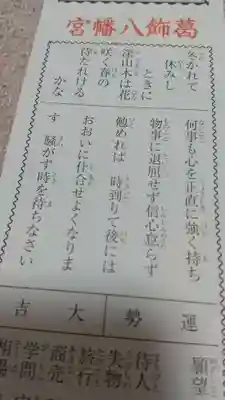 葛飾八幡宮
冬がれて
休みし
ときに
深山木は花
咲く春の
待たれける
かな
何事も心を正直に強く持ちつ
物事に退屈せず信心怠らず
勉めれば 時到りて後には
おおいに仕合せよくなりま
す 騒がす時を待ちなさい
運勢
大吉
願望
待人
失物
旅行
商売
学問
相場